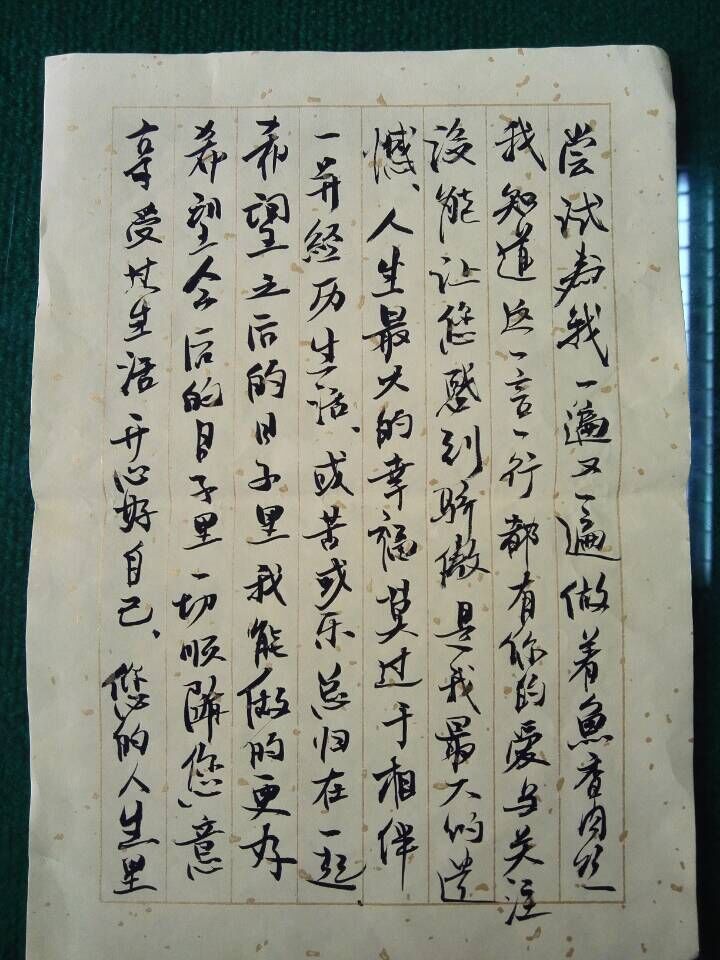 尝试为我一遍又一遍做着鱼香肉丝
我知道这一言一行都有你的爱与关注
没能让您感到骄傲是我最大的遗
憾、人生最大的幸福莫过于相伴
一并经历生活、或苦或乐总归在一起
希望之后的日子里我能做的更好
希望今后的日子里一切顺随您意
享受生活开心好自己、您的人生里